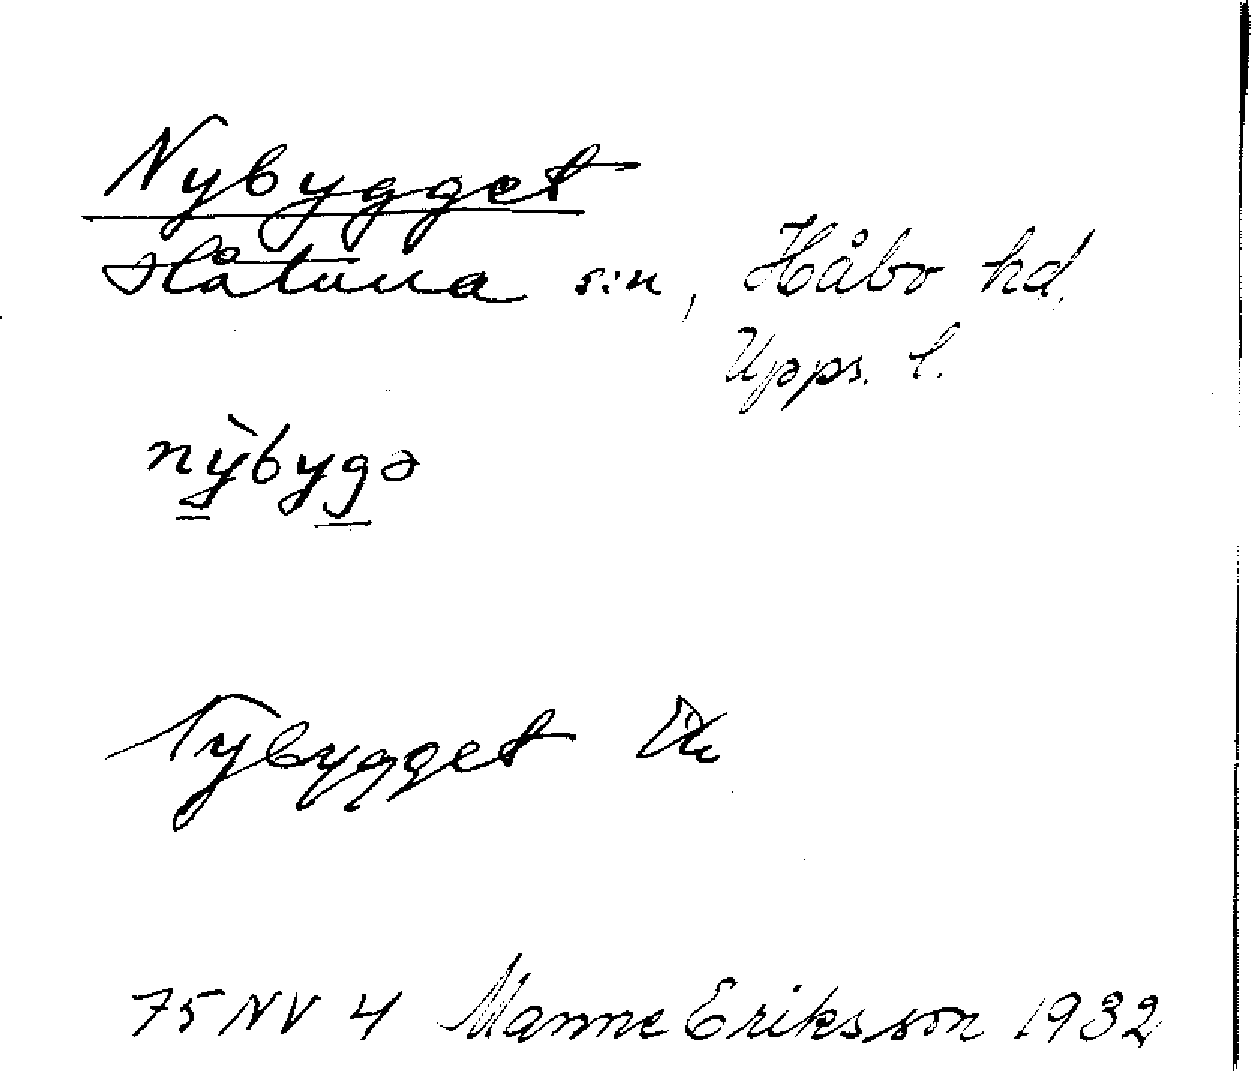 Nybygget
Håtuna s:n, Håbo hd.
Upps. l.
nỳbygə
Nybygget Ek
75 NV 4 Manne Eriksson 1932